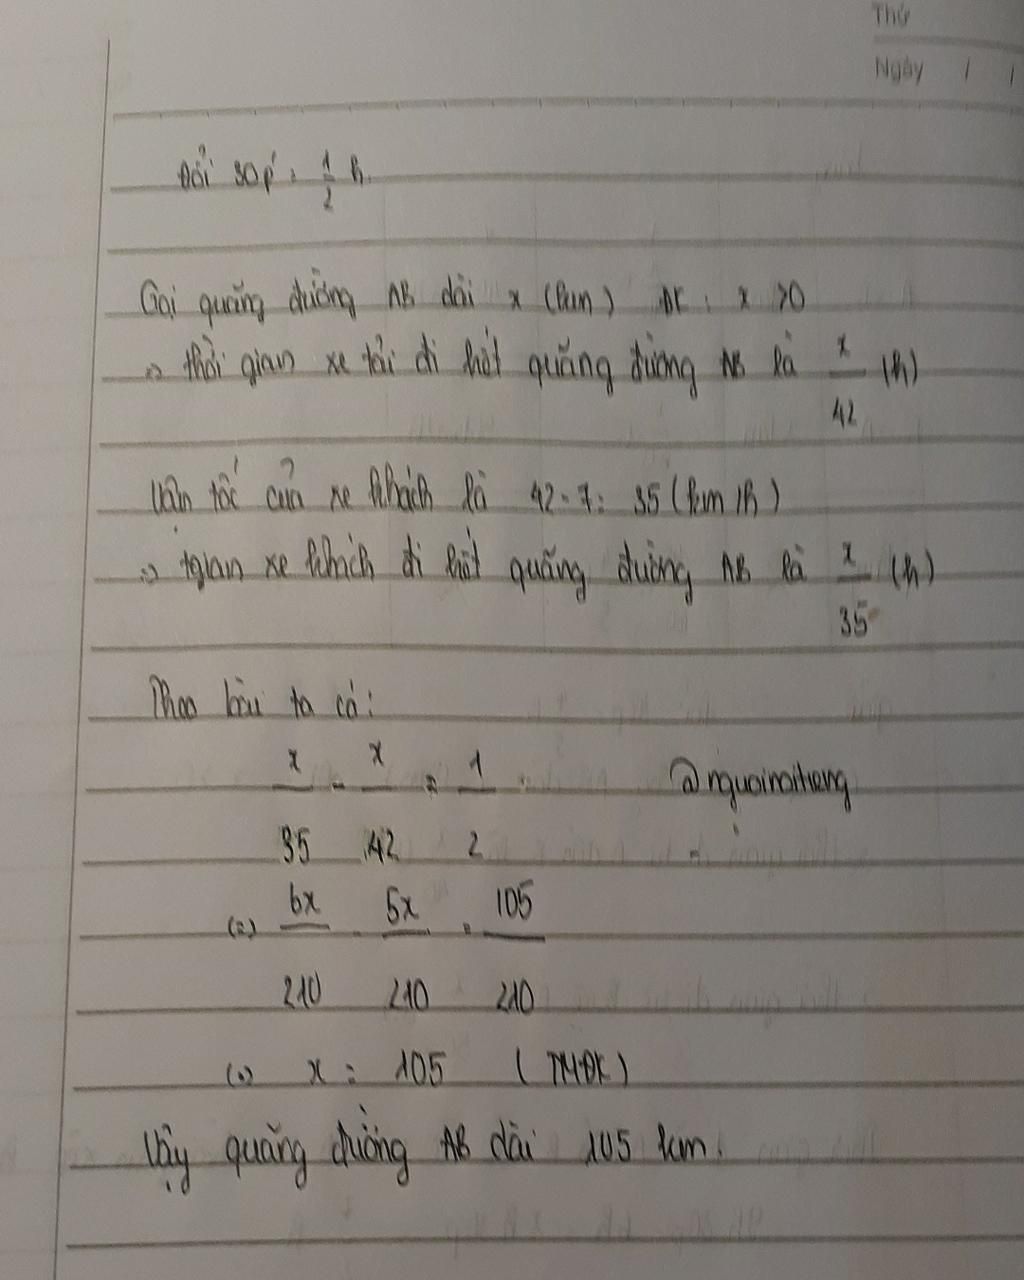 Thứ
Ngày / /
Đổi 30p' = 1/2 h.
Gọi quãng đường AB dài x (km) ĐK : x >0
=> thời gian xe tải đi hết quãng đường AB là x/42 (h)
Vận tốc của xe khách là 42-7= 35 (km/h)
=> tgian xe khách đi hết quãng đường AB là x/35 (h)
Theo bài ta có:
x/35 - x/42 = 1/2
@nguoinoitieng
(=) 6x/210 - 5x/210 = 105/210
(=) x = 105 (TMĐK)
Vậy quãng đường AB dài 105 km.